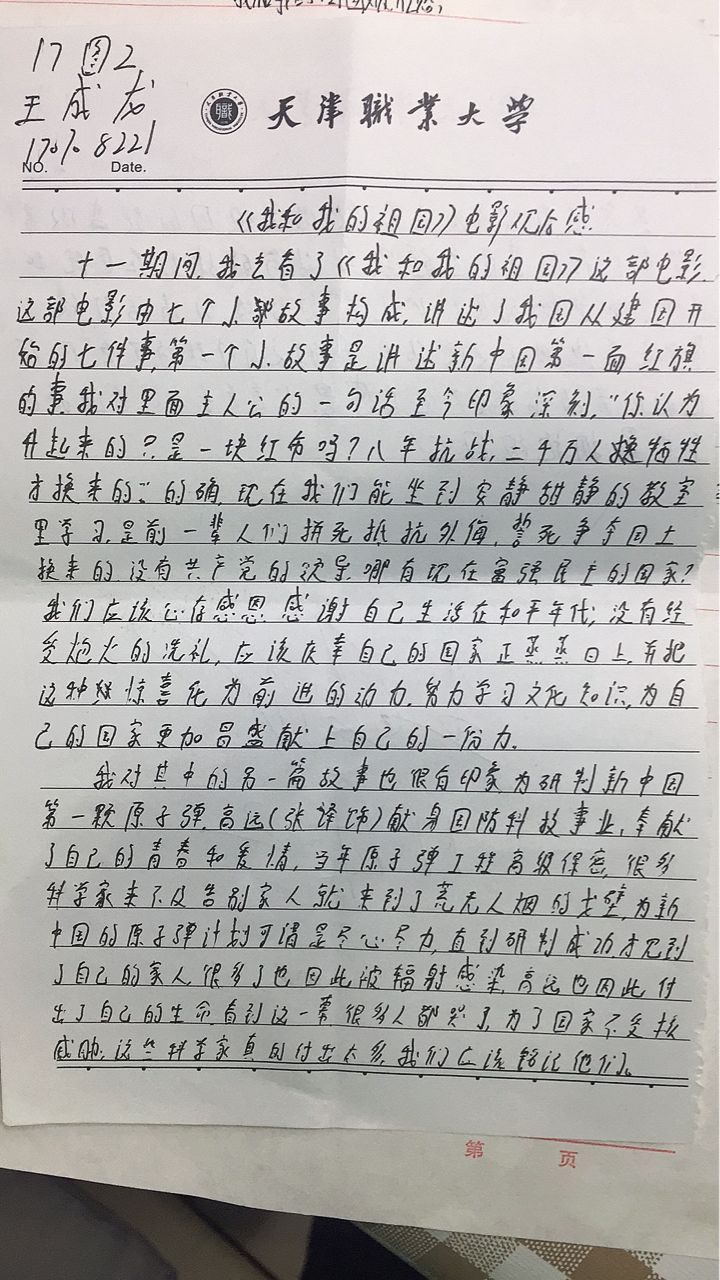 17图2
王成龙
170708221
NO. Date.
天津職業大學
《我和我的祖国》电影观后感
十一期间,我去看了《我和我的祖国》这部电影.
这部电影由七个小部故事构成,讲述了我国从建国开
始的七件事,第一个小故事是讲述新中国第一面红旗
的事,我对里面主人公的一句话至今印象深刻,“你认为
升起来的只是一块红布吗?八年抗战,二千万人牺牲
才换来的:”的确,现在我们能坐到安静甜静的教室
里学习,是前一辈人们拼死抵抗外侮,誓死争夺国土
换来的,没有共产党的领导,哪有现在富强民主的国家?
我们应该心存感恩,感谢自己生活在和平年代,没有经
受炮火的洗礼,应该庆幸自己的国家正蒸蒸日上,并把
这种惊喜化为前进的动力,努力学习文化知识,为自
己的国家更加昌盛献上自己的一份力.
我对其中的另一篇故事也很有印象,为研制新中国
第一颗原子弹,高远(张译饰)献身国防科技事业,奉献
了自己的青春和爱情,当年原子弹工程高级保密,很多
科学家来不及告别家人就来到了荒无人烟的戈壁,为新
中国的原子弹计划可谓是尽心尽力,直到研制成功才见到
了自己的家人,很多人也因此被辐射感染,高远也因此付
出了自己的生命,看到这一幕很多人都哭了,为了国家不受核
威胁,这些科学家真的付出太多,我们应该铭记他们。
第 页